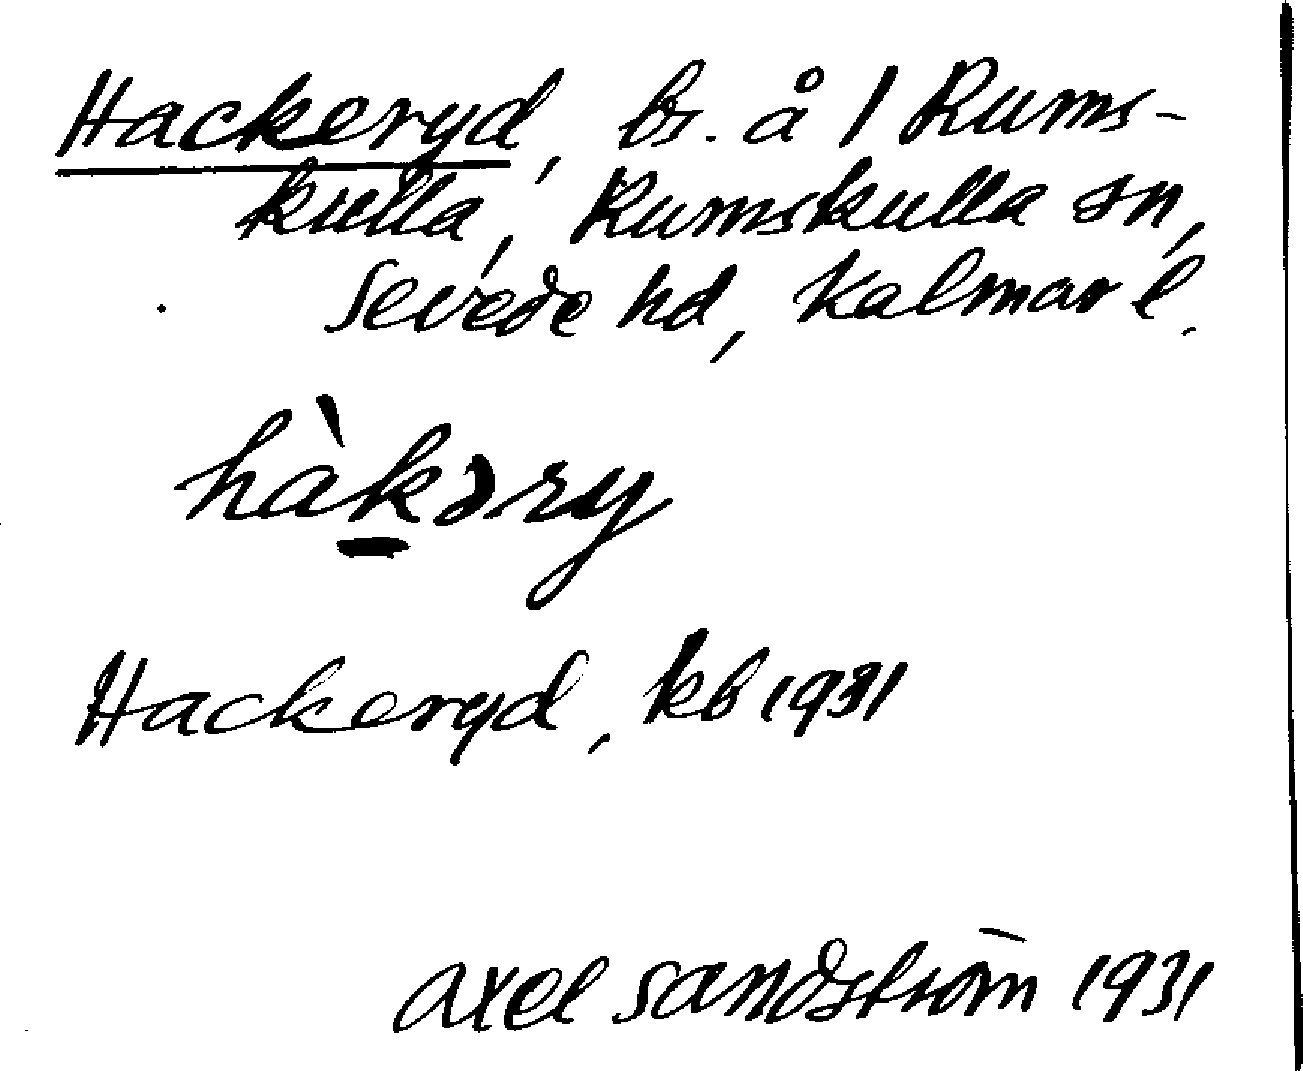 Hackeryd, bs. å 1 Rums-
kulla, Rumskulla sn,
Sevede hd, Kalmar l.
hàk̲əry
Hackeryd, kb 1931
Axel Sandström 1931